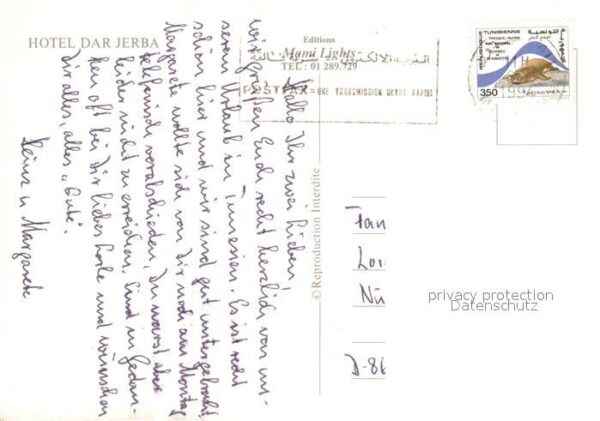 HOTEL DAR JERBA
Editions
Mami Lights
TEL : 01 289.729
POSTFAX = UNE TRANSMISSION ULTRA RAPIDE
REPUBLIQUE TUNISIENNE
350
1994
© Reproduction Interdite
Hallo Ihr zwei Lieben!
wir grüßen Euch recht herzlich von un-
serem Urlaub in Tunesien. Es ist recht
schön hier und wir sind gut untergebracht
Margarete wollte sich von Dir noch am Montag
telefonisch verabschieden, Du warst aber
leider nicht zu erreichen. Sind in Gedan-
ken oft bei Dir liebe Lorle und wünschen
Dir alles, alles "Gute".
Heinz u. Margarete
Fam
Lor
Nü
D-86
privacy protection
Datenschutz